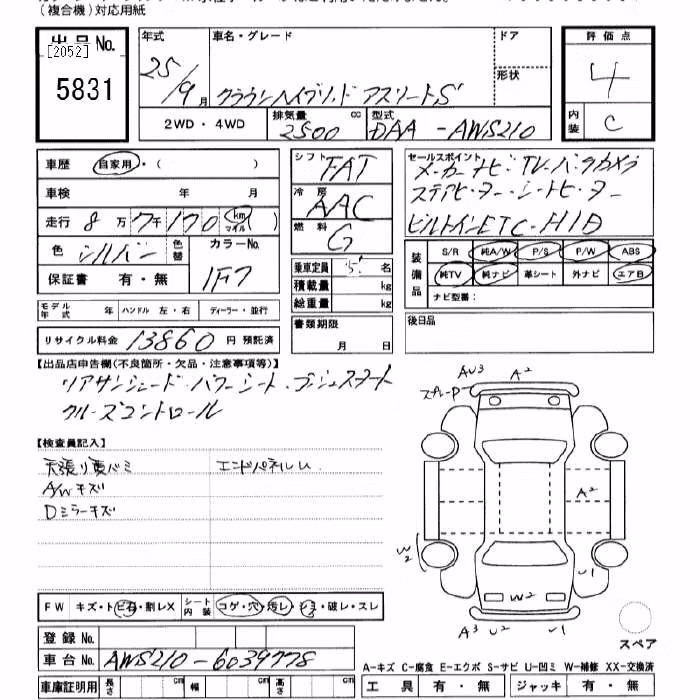 (複合機)対応用紙
出品No.
[2052]
5831
年式 車名・グレード ドア
25/9月 クラウンハイブリッド アスリートS 形状
評価点
4
内装 C
2WD・4WD 排気量 2500 cc 型式 DAA-AWS210
車歴 自家用・( )
車検 年 月
走行 8万7千170 (km マイル)
色 シルバー 色替 カラーNo.
保証書 有・無 1F7
モデル年式 年 ハンドル 左・右 ディーラー・並行
リサイクル料金 13860 円 預託済
シフト FAT
冷房 AAC
燃料 G
乗車定員 5 名
積載量 kg
総重量 kg
書類期限
月 日
セールスポイント
メーカーナビ・TV・バックカメラ
ステアヒーター・シートヒーター
ビルトインETC・HID
装備品 S/R 純A/W P/S P/W ABS
純TV 純ナビ 革シート 外ナビ エアB
ナビ型番:
後日品
【出品店申告欄(不良箇所・欠品・注意事項等)】
リアサンシェード・パワーシート・プッシュスタート
クルーズコントロール
【検査員記入】
天張り裏バミ エンドパネルU
A/Wキズ
Dミラーキズ
AU3 A2
スポイラーP
A2
W2
U1
W2
A3 U2 U1
スペア
FW キズ・トビ石・割レX シート内装 コゲ・穴・汚レ・シミ・破レ・スレ
登録No.
車台No. AWS210-6039778
車庫証明用 長さ cm 幅 cm 高さ cm
A-キズ C-腐食 E-エクボ S-サビ U-凹ミ W-補修 XX-交換済
工具 有・無 ジャッキ 有・無